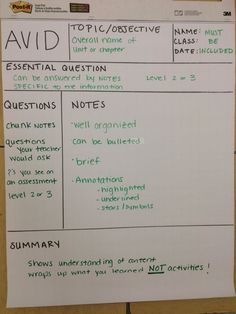 Post-it
AVID
TOPIC/OBJECTIVE
Overall name of
Unit or chapter
NAME: MUST
CLASS: BE
DATE: INCLUDED
ESSENTIAL QUESTION
Can be answered by notes
SPECIFIC to the information
Level 2 or 3
QUESTIONS
chunk NOTES
questions
your teacher
would ask
?'s you see on
an assessment
level 2 or 3
NOTES
-well organized
can be bulleted
-brief
-Annotations
-highlighted
-underlined
-stars/symbols
SUMMARY
Shows understanding of content
wraps up what you learned NOT activities!